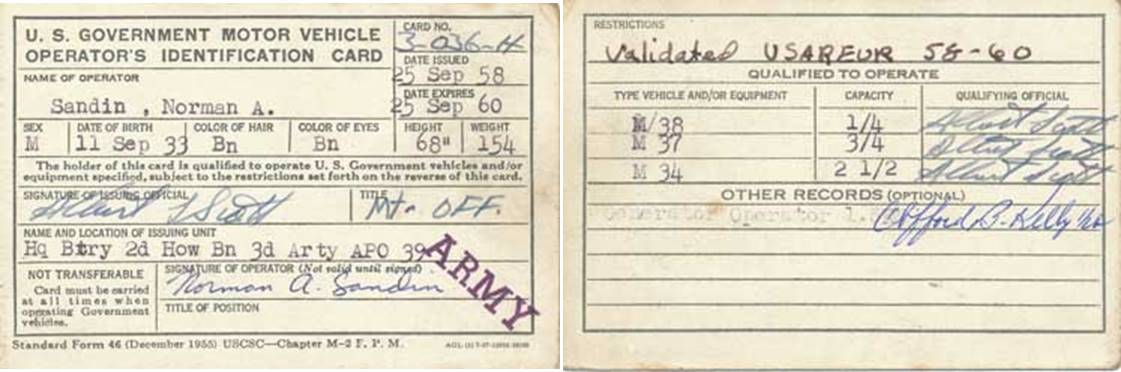 U. S. GOVERNMENT MOTOR VEHICLE
OPERATOR'S IDENTIFICATION CARD
CARD NO.
3-036-H
DATE ISSUED
25 Sep 58
DATE EXPIRES
25 Sep 60
NAME OF OPERATOR
Sandin , Norman A.
SEX DATE OF BIRTH COLOR OF HAIR COLOR OF EYES HEIGHT WEIGHT
M 11 Sep 33 Bn Bn 68" 154
The holder of this card is qualified to operate U. S. Government vehicles and/or
equipment specified, subject to the restrictions set forth on the reverse of this card.
SIGNATURE OF ISSUING OFFICIAL TITLE
Albert Scott Mt. OFF.
NAME AND LOCATION OF ISSUING UNIT
Hq Btry 2d How Bn 3d Arty APO 39
ARMY
NOT TRANSFERABLE
Card must be carried
at all times when
operating Government
vehicles.
SIGNATURE OF OPERATOR (Not valid until signed)
Norman A. Sandin
TITLE OF POSITION
Standard Form 46 (December 1955) USCSC—Chapter M-2 F. P. M.
RESTRICTIONS
Validated USAREUR 58-60
QUALIFIED TO OPERATE
TYPE VEHICLE AND/OR EQUIPMENT CAPACITY QUALIFYING OFFICIAL
M/38 1/4 Albert Scott
M 37 3/4 Albert Scott
M 34 2 1/2 Albert Scott
OTHER RECORDS (OPTIONAL)
Generator Operator Clifford B. Kelly